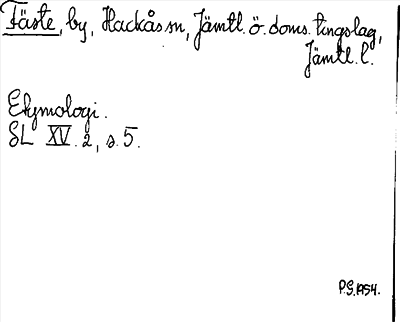 Fäste, by, Hackås sn, Jämtl. ö. doms. tingslag,
Jämtl. l.
Etymologi.
SL XV. 2, s. 5.
P.G. 1954.